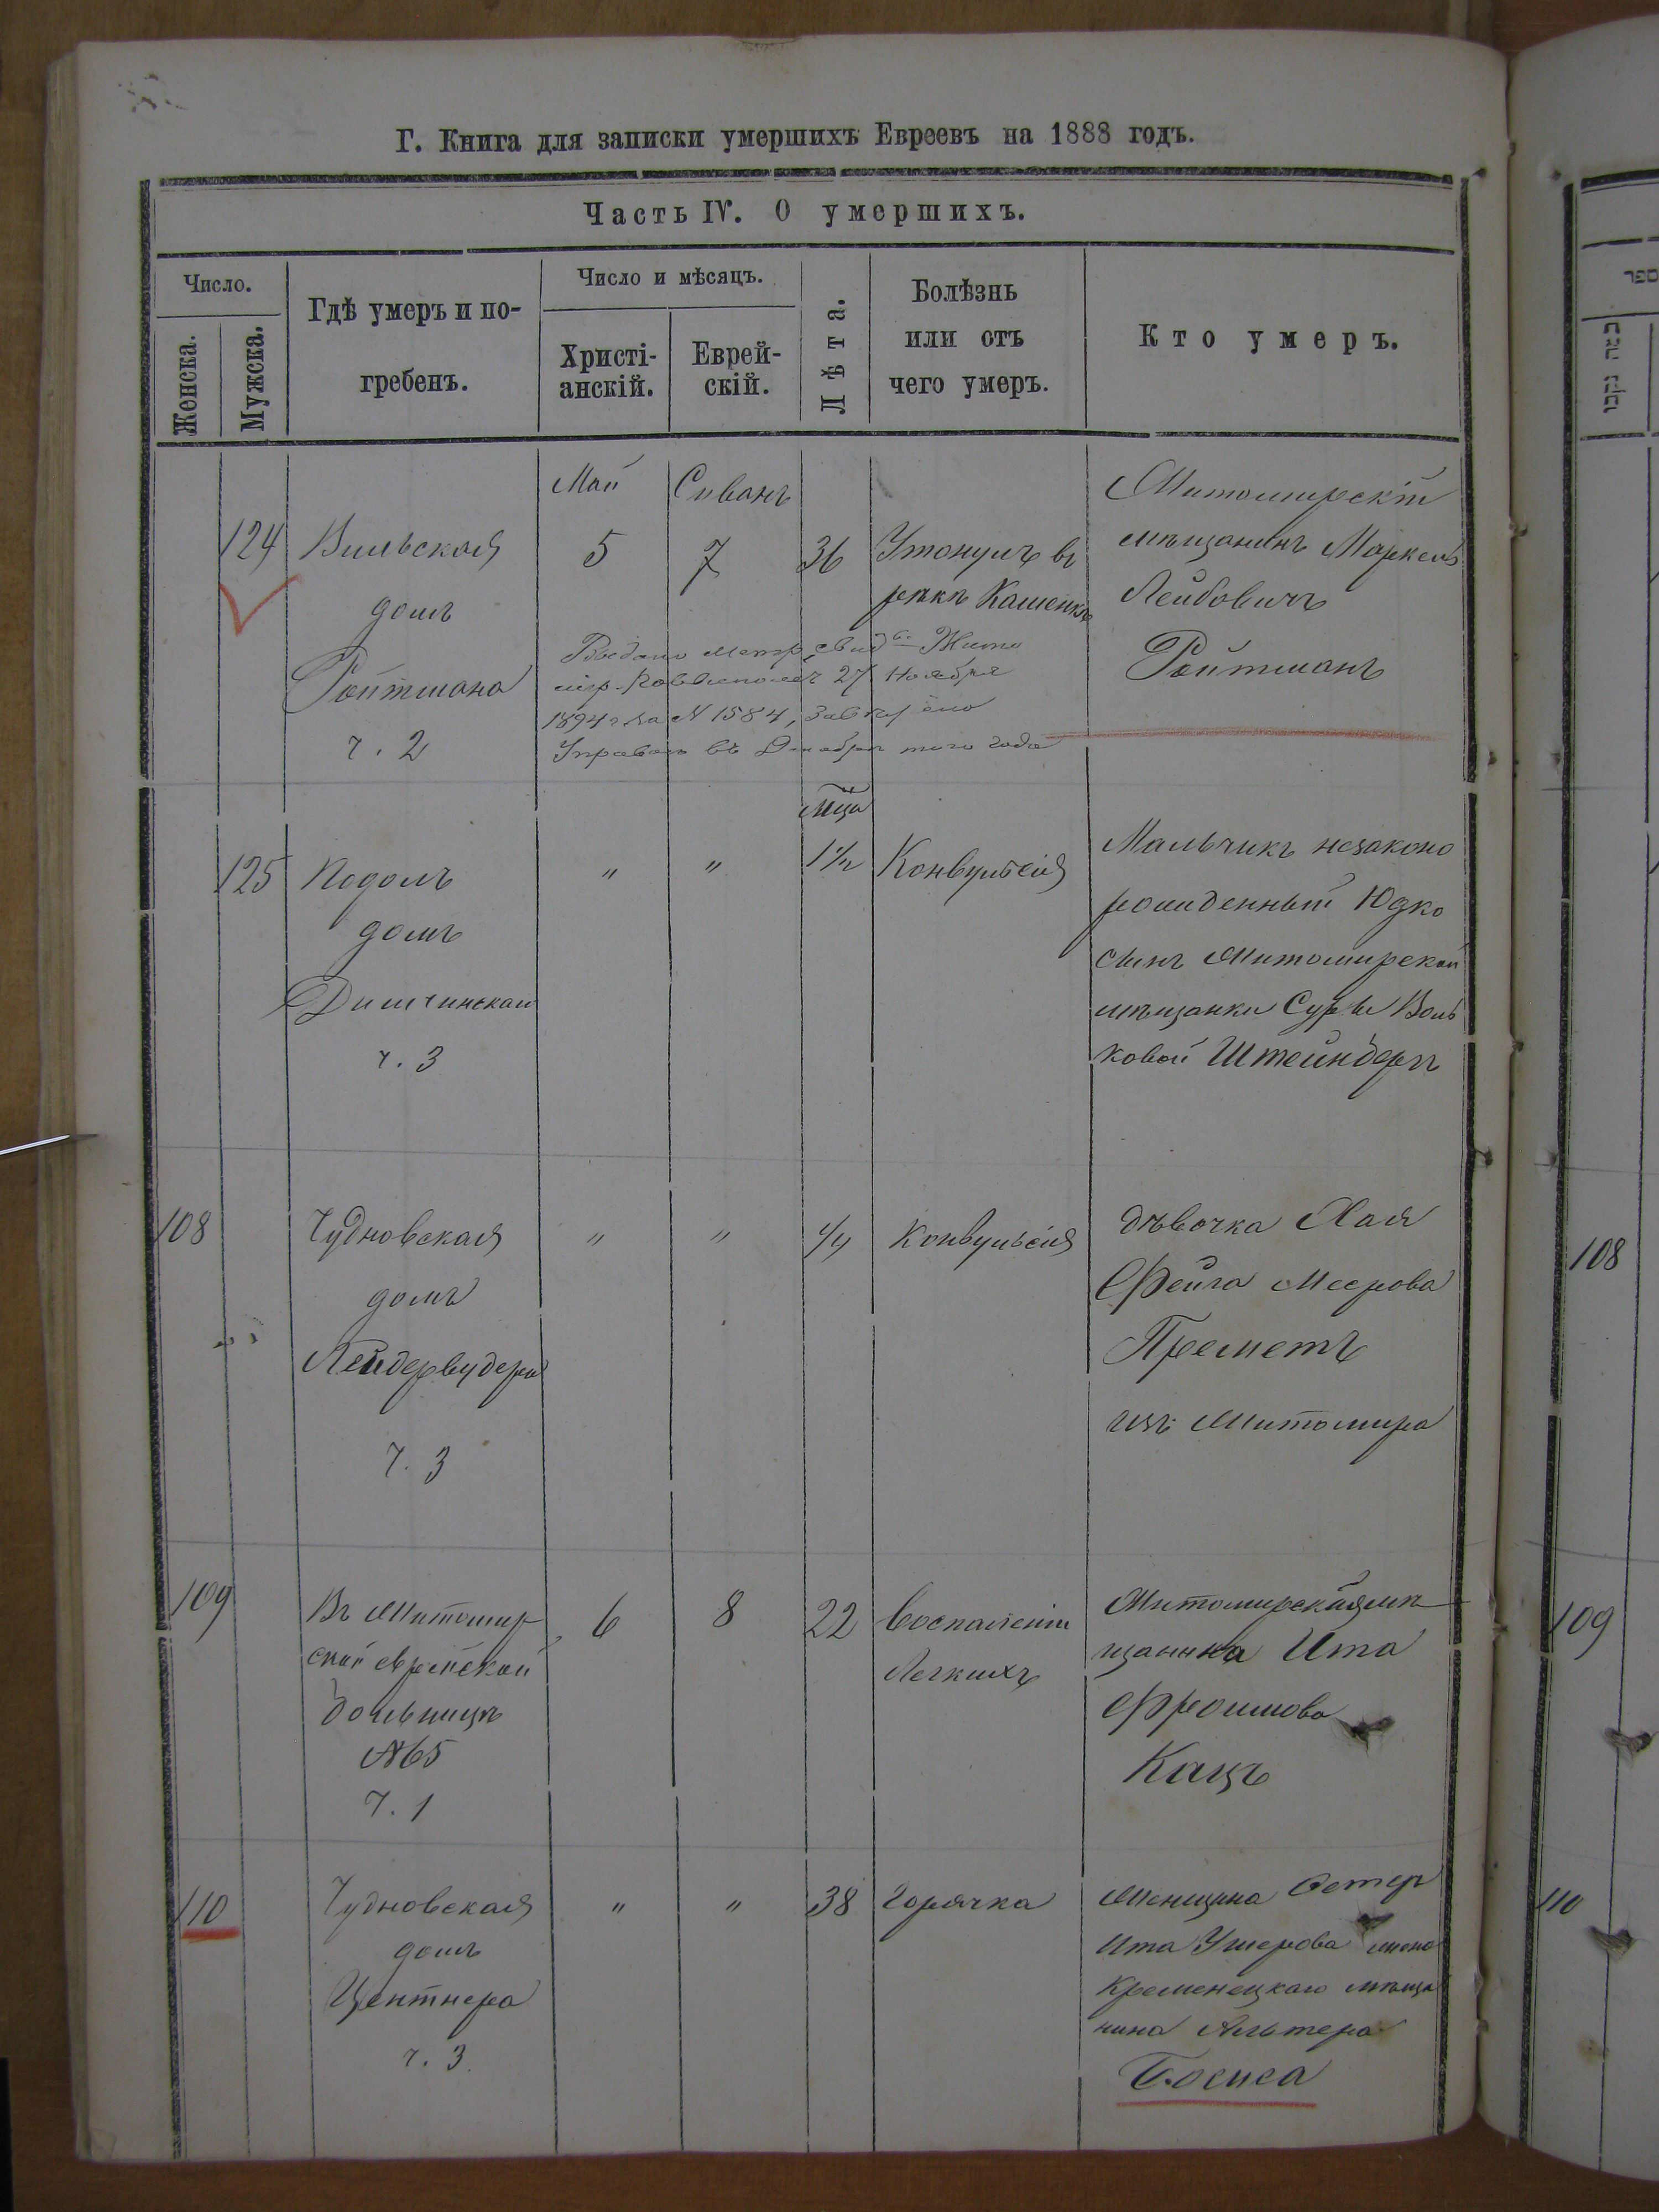 Г. Книга для записки умершихъ Евреевъ на 1888 годъ.
Часть IV. О умершихъ.
Число.
Женска.
Мужска.
Гдѣ умеръ и по-
гребенъ.
Число и мѣсяцъ.
Христі-
анскій.
Еврей-
скій.
Лѣта.
Болѣзнь
или отъ
чего умеръ.
Кто умеръ.
Май
Сиванъ
124
Вильская
домъ
Ройтмана
ч. 2
5
7
36
Утонулъ въ
рѣкѣ Каменкѣ
Житомирскій
мѣщанинъ
Лейбовичъ
Ройтманъ
Выдано метр. свид. Жито
27 Ноября
1894 года № 1584,
въ Декабрѣ того года
125
Подолъ
домъ
ч. 3
"
"
мца
1 1/2
Конвульсія
Мальчикъ незаконо
рожденный Юдко
сынъ Житомирской
мѣщанки Суры Воль
ковой Штейнберъ
108
Чудновская
домъ
ч. 3
"
"
1/4
Конвульсія
дѣвочка Хая
Фейга Меерова
Преметъ
изъ Житомира
109
Въ Житомир
ской еврейской
больницѣ
№65
ч. 1
6
8
22
Воспаленіи
Легкихъ
Житомирская мѣ
щанка Ита
Фроимова
Кацъ
110
Чудновская
домъ
Центнера
ч. 3.
"
"
38
Горячка
Женщина Естер
Ита Ушерова жена
Кременецкаго мѣща
нина Альтера
108
109
110
ספר